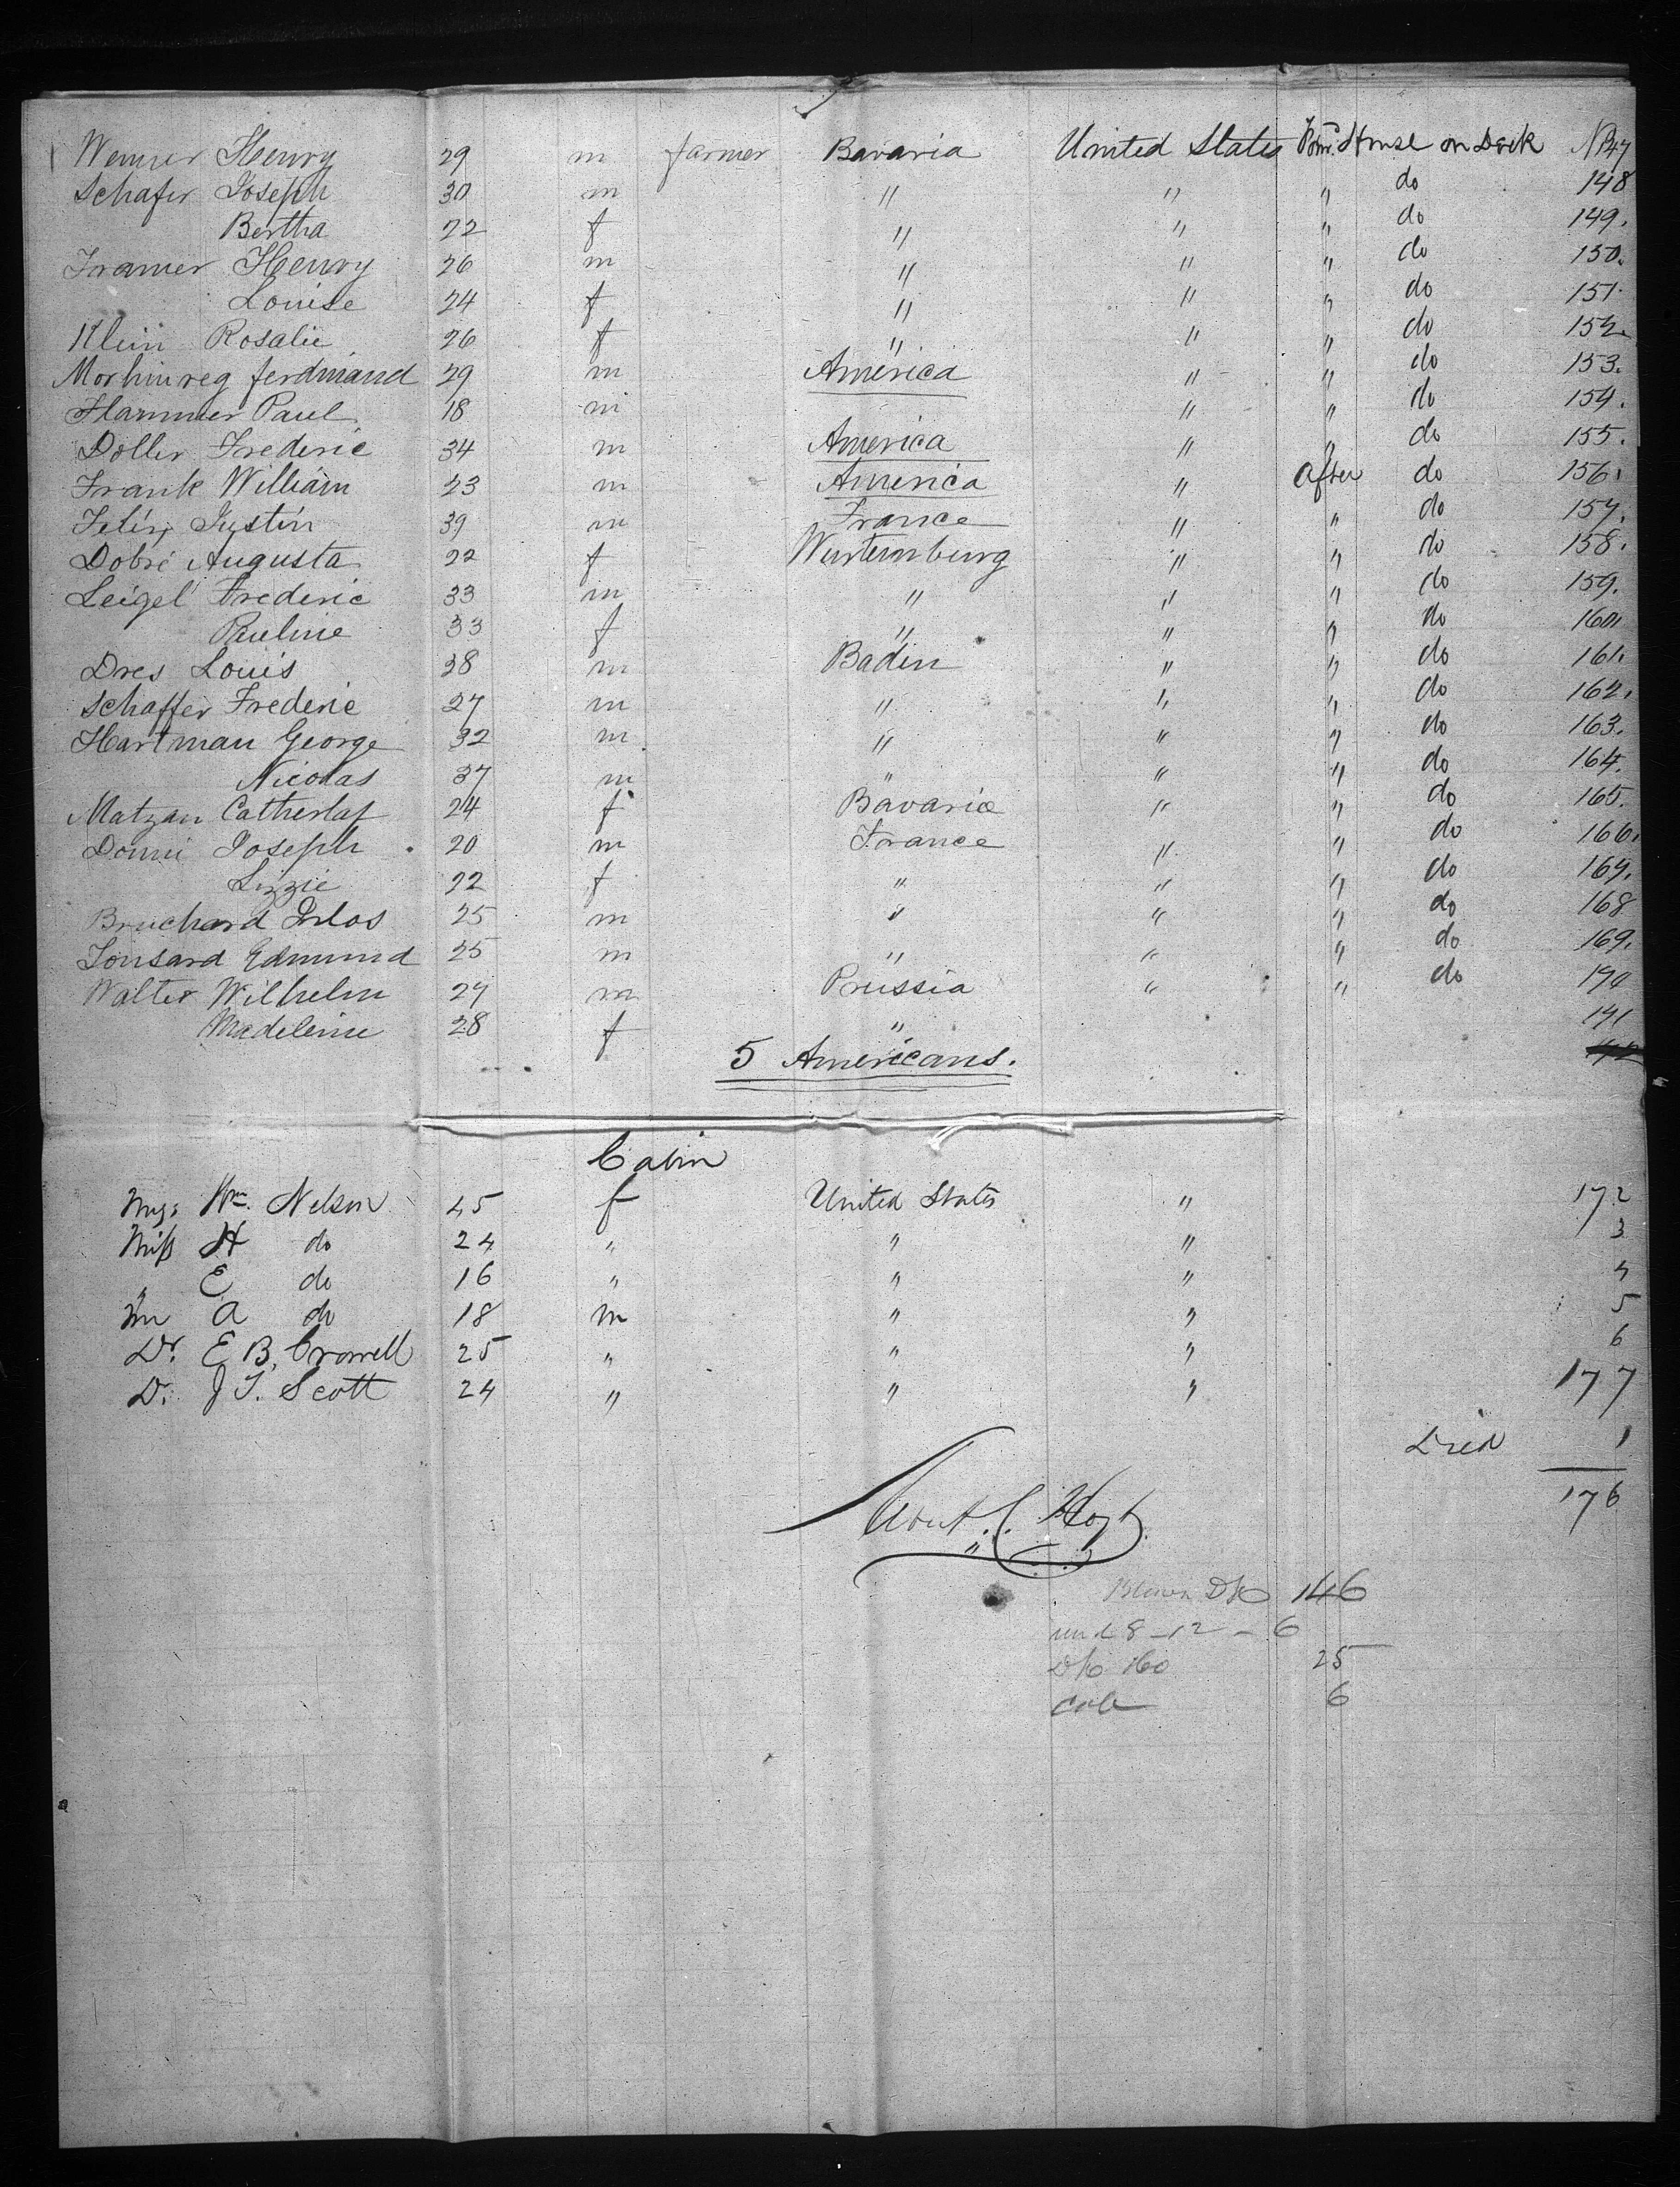 Wenner Henry 29 m farmer Bavaria United States Forw. House on Deck No 147
Schafer Joseph 30 m " " " do 148
Bertha 22 f " " " do 149.
Framer Henry 26 m " " " do 150.
Louise 24 f " " " do 151.
Klein Rosalie 26 f " " " do 152.
ferdinand 29 m America " " do 153.
Hammer Paul 18 m " " do 154.
Doller Frederic 34 m America " " do 155.
Frank William 23 m America " After do 156.
Justin 39 m France " " do 157.
Dobri Augusta 22 f Wurtemburg " " do 158.
Leigel Frederic 33 m " " " do 159.
Pauline 33 f " " " do 160.
Dres Louis 38 m Baden " " do 161.
Schaffer Frederic 27 m " " " do 162.
Hartman George 32 m " " " do 163.
Nicolas 37 m " " " do 164.
Matzan 24 f Bavaria " " do 165.
Domi Joseph 20 m France " " do 166.
Lizzie 22 f " " " do 167.
Bruchard 25 m " " " do 168
Edmund 25 m " " " do 169.
Walter Wilhelm 27 m Prussia " " do 170
Madeleine 28 f " 171
5 Americans.
Cabin
Mrs Wm. Nelson 45 f United States " 172
Miss H do 24 " " " 3
" E do 16 " " " 4
Mr A do 18 m " " 5
Dr. E B. Crowell 25 " " " 6
Dr. J T. Scott 24 " " " 177
Died 1
176
Hoyt
146
8-12 - 6
160 25
Cab 6